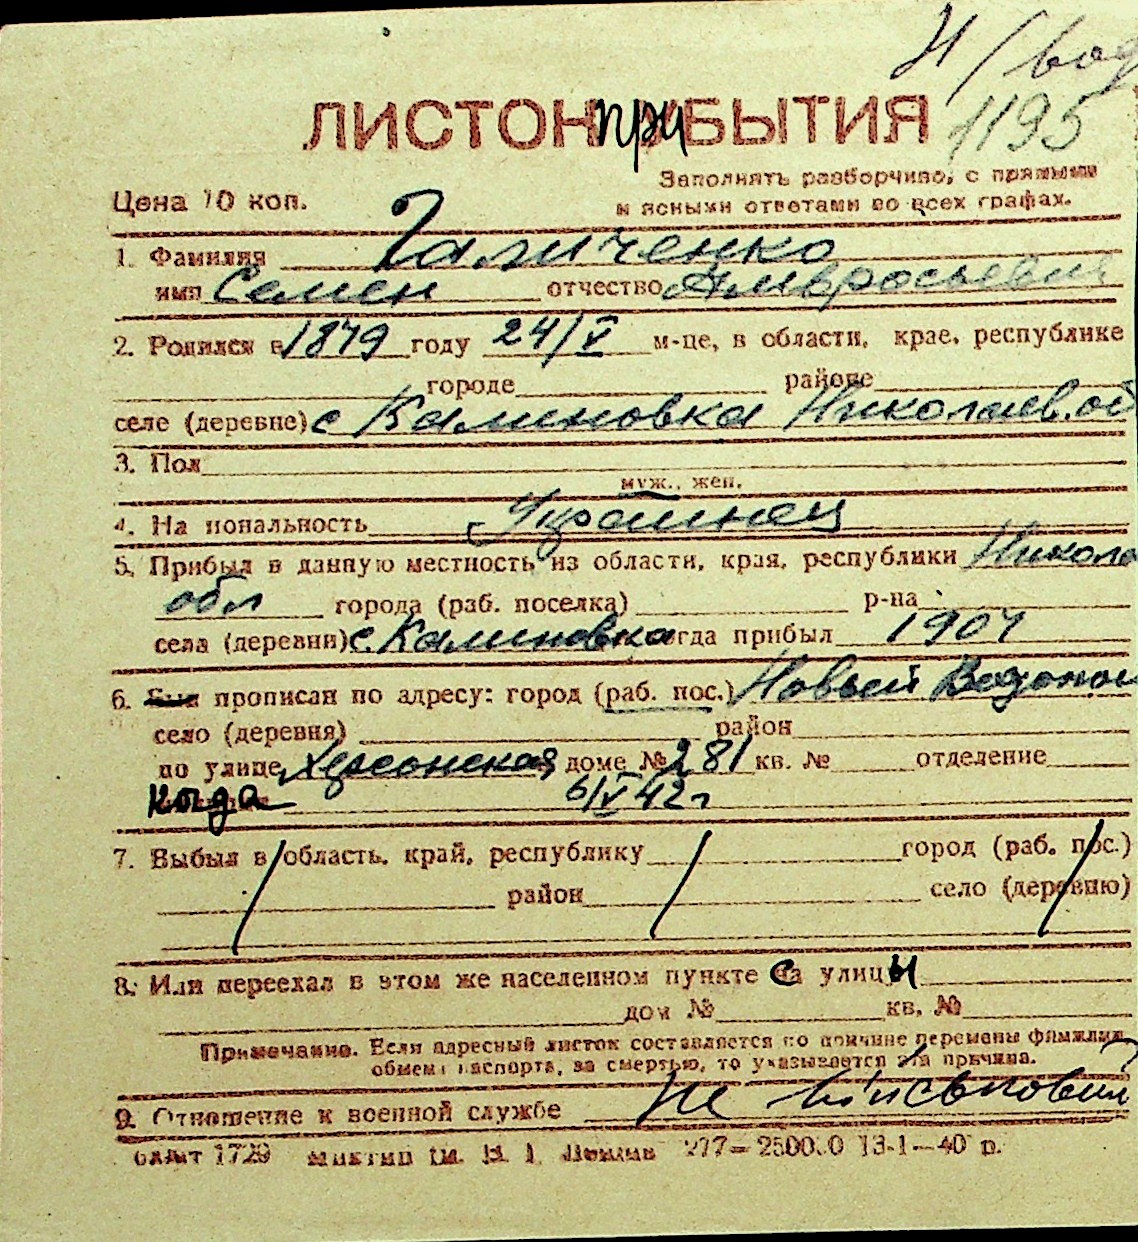 Н/вод
1195
ЛИСТОК при БЫТИЯ
Заполнять разборчиво, с прямыми
и ясными ответами во всех графах.
Цена 10 коп.
1. Фамилия Галиченко
имя Семен отчество Амвросьевич
2. Родился в 1879 году 24/V м-це, в области, крае, республике
городе районе
селе (деревне) с Калиновка Николаев.об
3. Пол
муж., жен.
4. На иональность Украинец
5. Прибыл в данную местность из области, края, республики Никола
обл города (раб. поселка) р-на
села (деревни) с. Калиновка гда прибыл 1907
6. Был прописан по адресу: город (раб. пос.) Новый Водопой
село (деревня) район
по улице Херсонская доме № 281 кв. № отделение
Когда 6/V 42 г
7. Выбыл в область, край, республику город (раб. пос.)
район село (деревню)
8. Или переехал в этом же населенном пункте с улицы
дом № кв. №
Примечание. Если адресный листок составляется по причине перемены фамилии,
обмена паспорта, за смертью, то указывается эта причина.
9. Отношение к военной службе Не військовий
1729 277—250000 13-1—40 р.